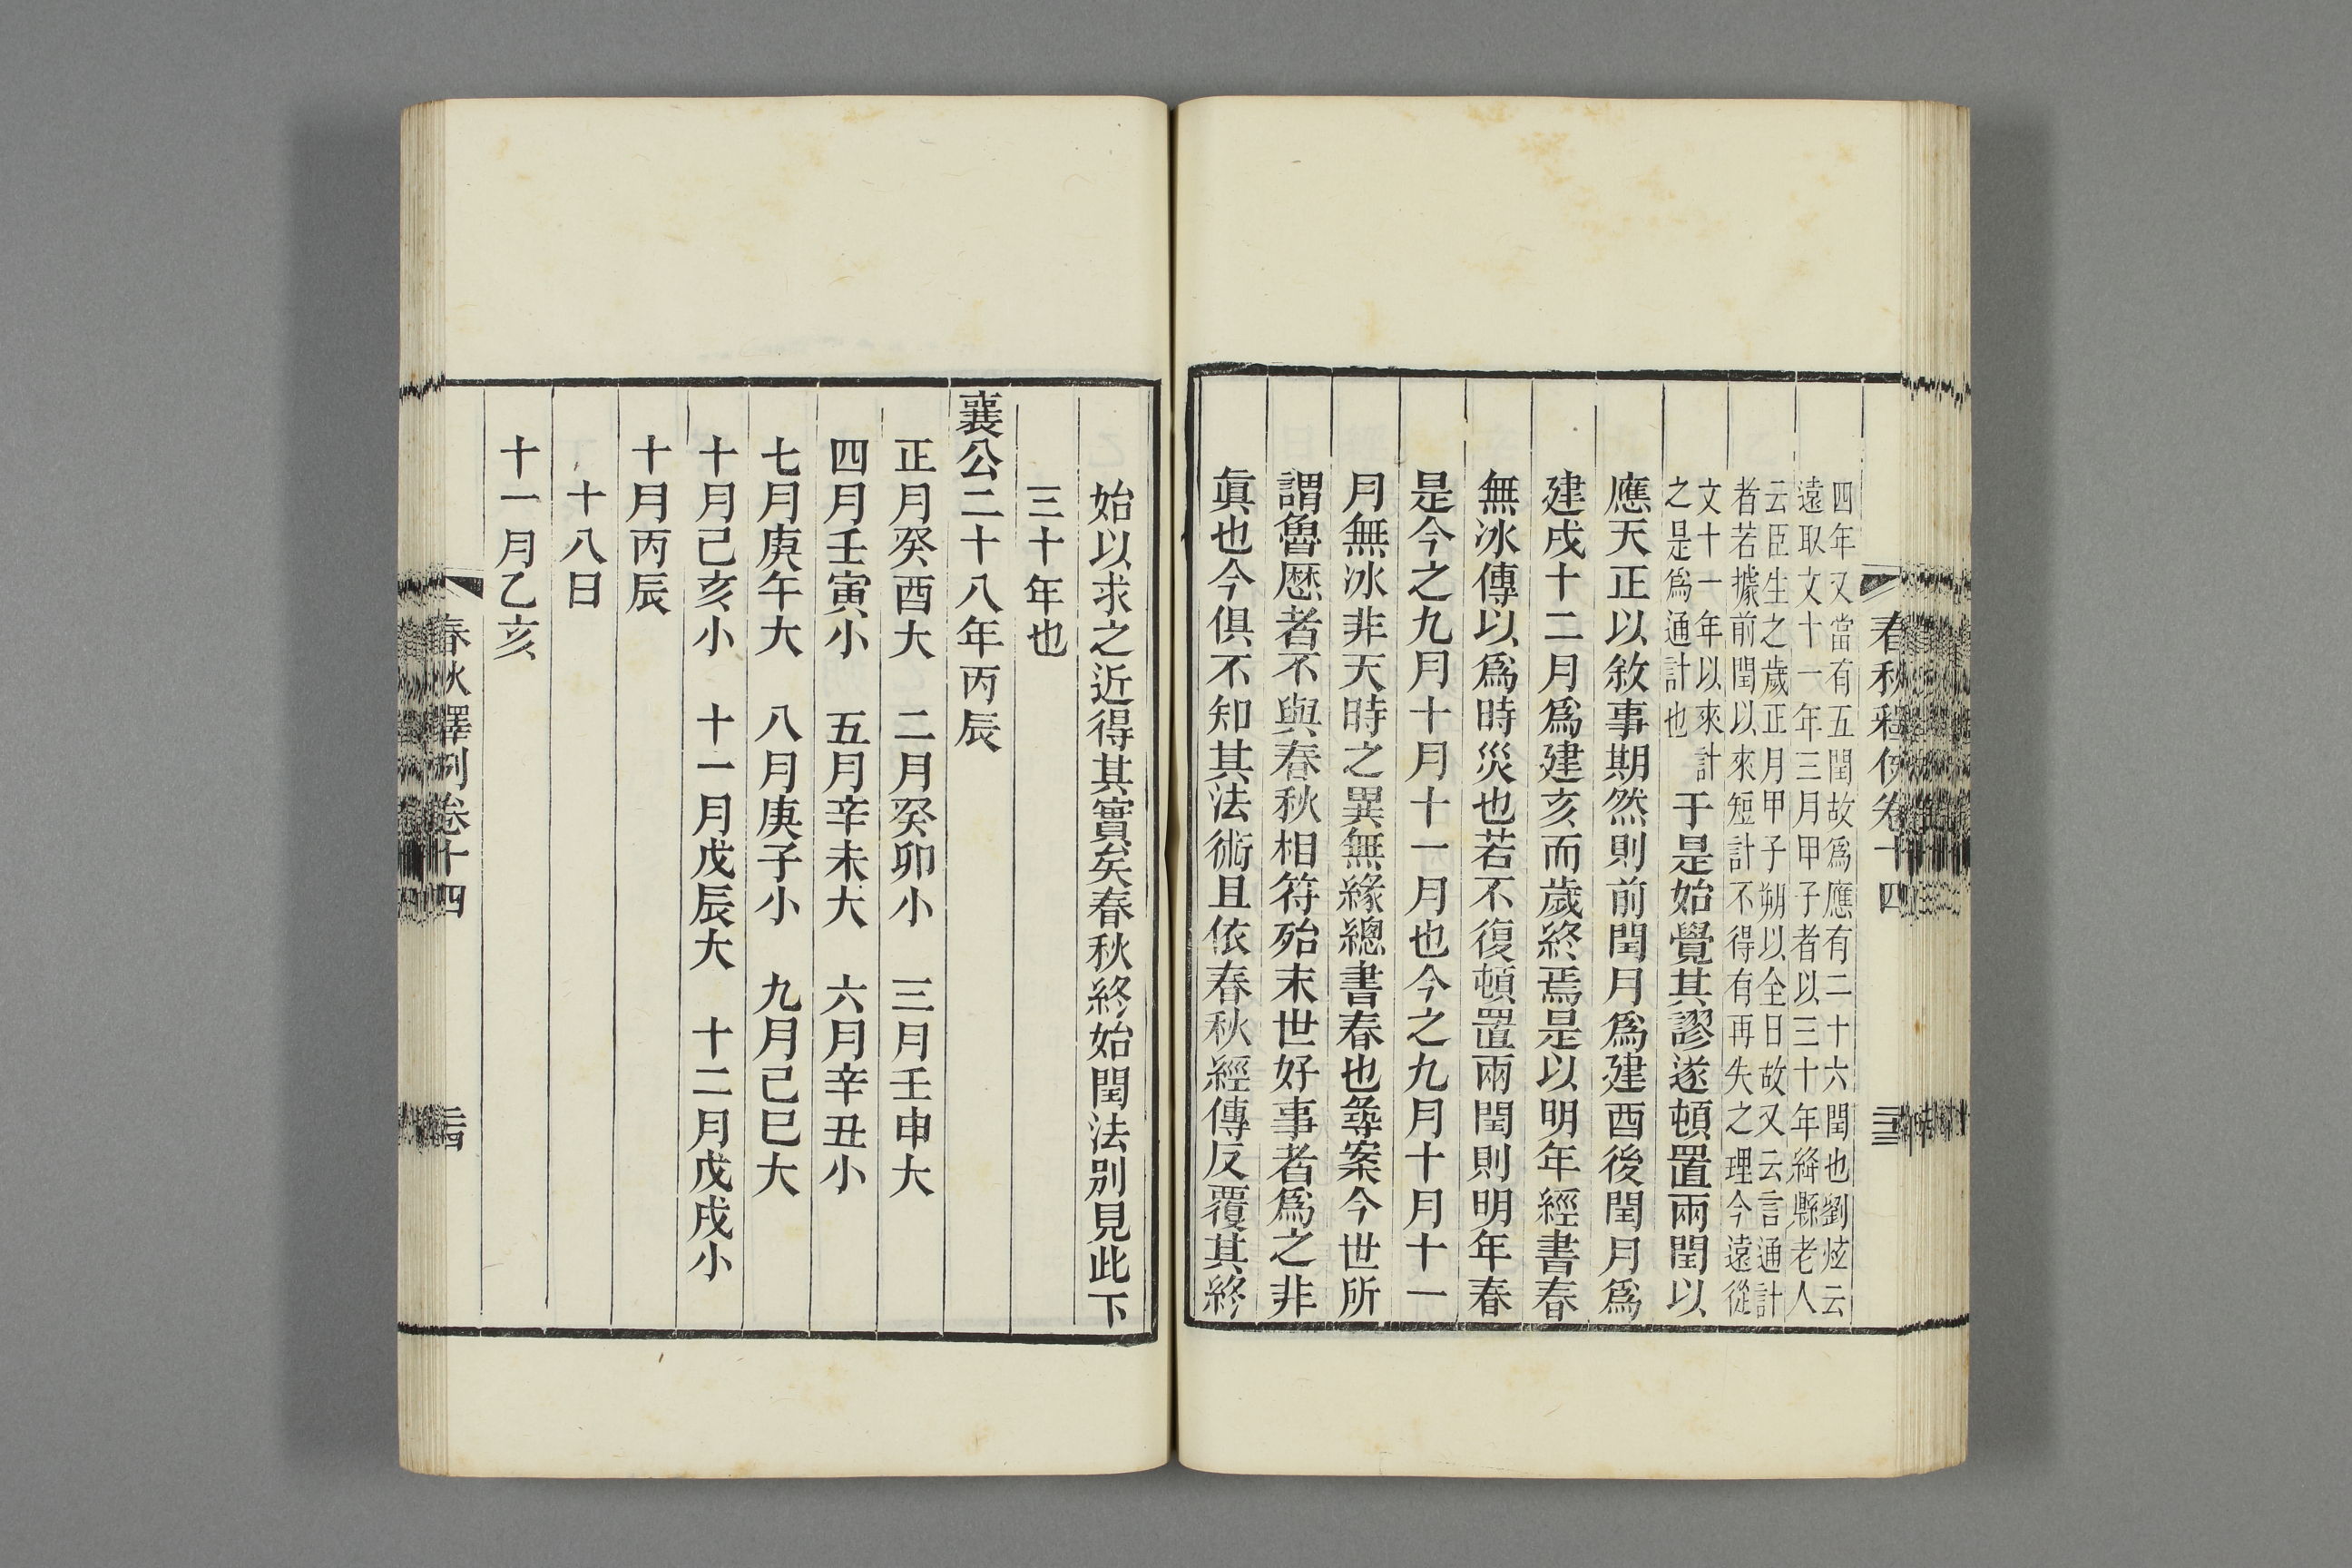 春秋釋例卷十四
四年又當有五閏故爲應有二十六閏也劉炫云
遠取文十一年三月甲子者以三十年絳縣老人
云臣生之歲正月甲子朔以全日故又云言通計
者若據前閏以來短計不得有再失之理今遠從
文十一年以來計
之是爲通計也
于是始覺其謬遂頓置兩閏以
應天正以敘事期然則前閏月爲建酉後閏月爲
建戌十二月爲建亥而歲終焉是以明年經書春
無冰傳以爲時災也若不復頓置兩閏則明年春
是今之九月十月十一月也今之九月十月十一
月無冰非天時之異無緣總書春也㝷案今世所
謂魯厯者不與春秋相符殆末世好事者爲之非
眞也今俱不知其法術且依春秋經傳反覆其終
始以求之近得其實矣春秋終始閏法別見此下
三十年也
襄公二十八年丙辰
正月癸酉大 二月癸卯小 三月壬申大
四月壬寅小 五月辛未大 六月辛丑小
七月庚午大 八月庚子小 九月己巳大
十月己亥小 十一月戊辰大 十二月戊戌小
十月丙辰
十八日
十一月乙亥
春秋釋例卷十四